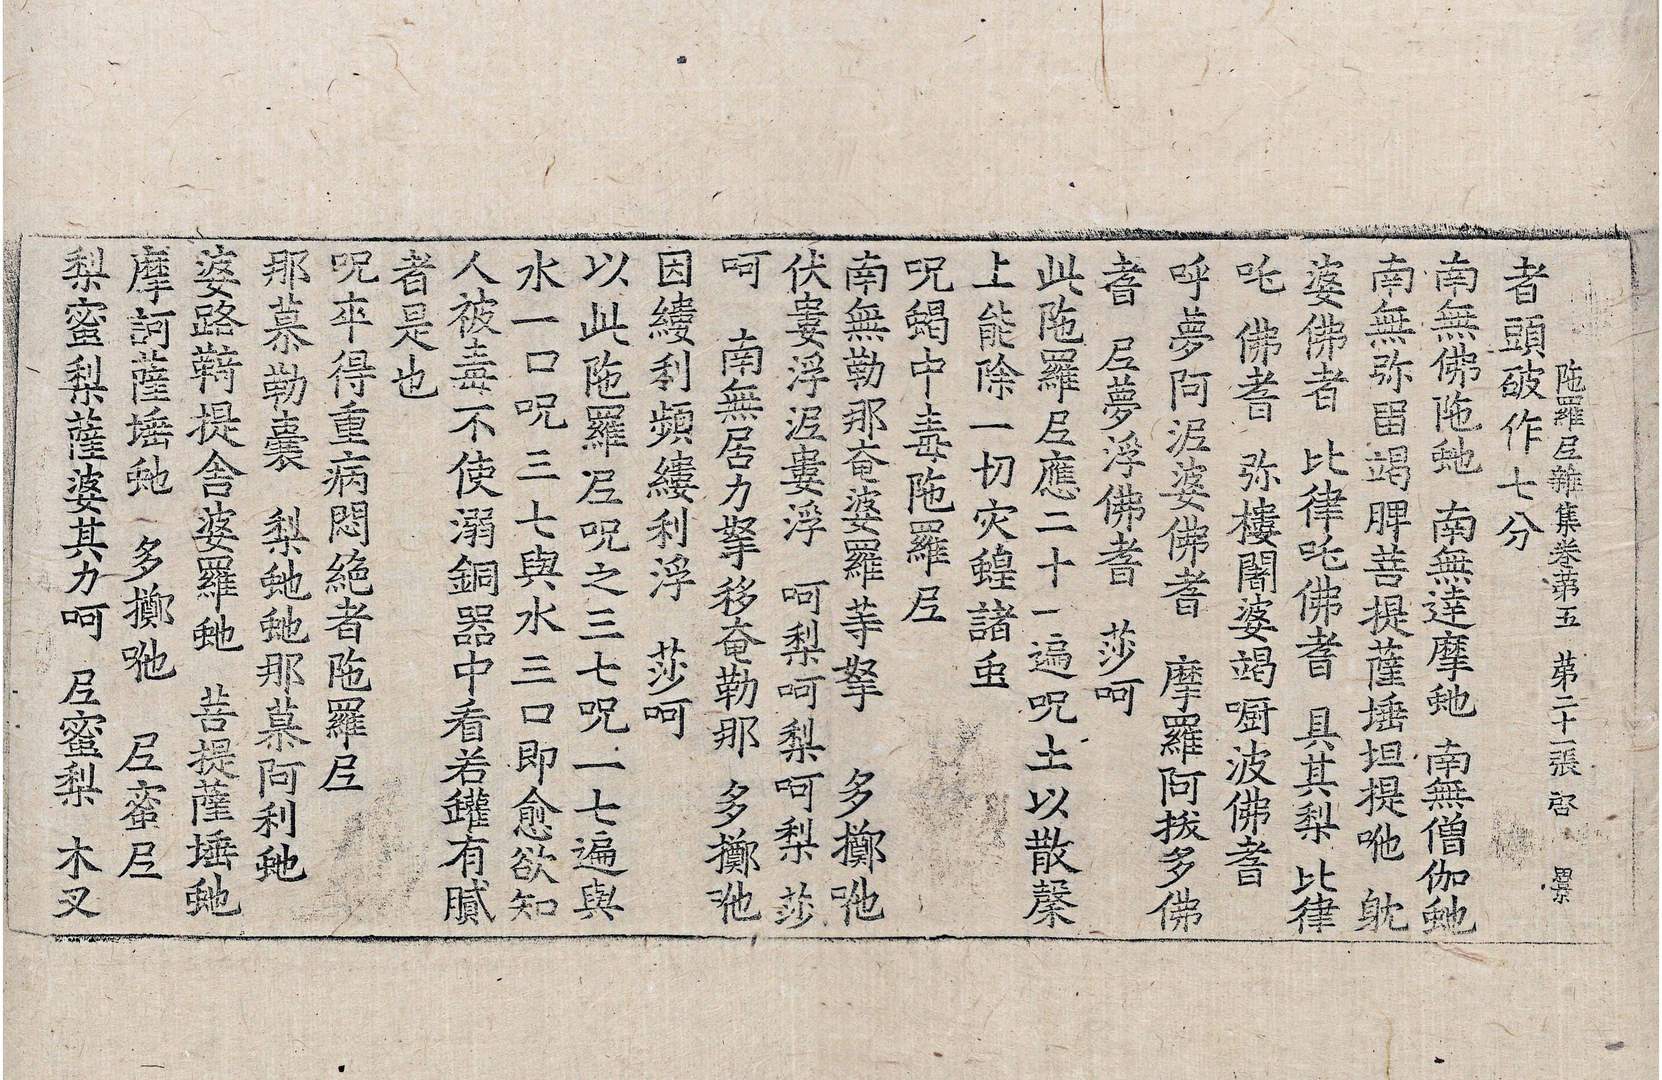 陁羅尼雜集卷第五　第二十一張　啓　㬌
者頭破作七分
南無佛陁虵　南無達摩虵　南無僧伽虵
南無弥留竭脾菩提薩埵坦提咃　躭
婆佛耆　比律吒佛耆　具其梨　比律
吒　佛耆　弥樓闍婆竭㕑波佛耆
呼夢阿泥婆佛耆　摩羅阿拔多佛
耆　尼夢浮佛耆　莎呵
此陁羅尼應二十一遍呪土以散䅽
上能除一切灾蝗諸虫
呪蝎中毒陁羅尼
南無勒那奄婆羅䓁拏　多擲咃
伏婁浮泥婁浮　呵梨呵梨呵梨　莎
呵　南無居力拏移奄勒那　多擲咃
因縷利頻縷利浮　莎呵
以此陁羅尼呪之三七呪一七遍與
水一口呪三七與水三口即愈欲知
人被毒不使溺銅器中看若鑵有膩
者是也
呪卒得重病悶絶者陁羅尼
那慕勒囊　梨虵虵那慕阿利虵
婆路鞊提舍婆羅虵　菩提薩埵虵
摩訶薩埵虵　多擲咃　尼蜜尼
梨蜜梨薩婆其力呵　尼蜜梨　木叉